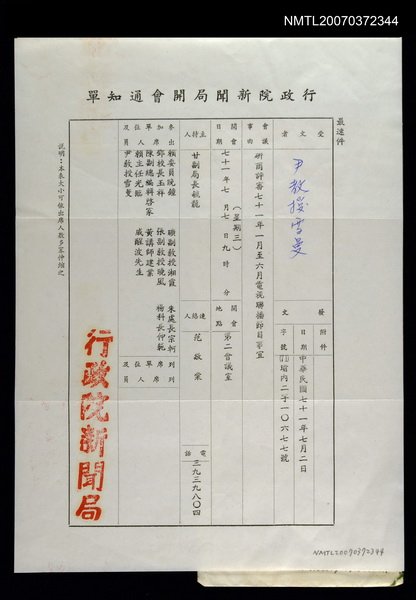 NMTL20070372344
行政院新聞局開會通知單
最速件
受文者
尹教授雪曼
發文
附件
日期
中華民國七十一年七月二日
字號
(71)瑜內二字一〇六七七號
會議事由
研商評審七十一年一月至六月電視聯播節目事宜
開會日期
七十一年七月七日九時分
(星期三)
開會地點
第二會議室
主持人
甘副局長毓龍
連絡人
范啟業
電話
三九三九八〇四
參加單位及人員
出席人員
鄧校長玉祥
賴主任光臨
尹教授雪曼
張副教授曉風
黃講師建業
戚醒波先生
朱處長宗軻
楊科長仲範
列席單位及人員
說明：本表大小可依出席人數多寡伸縮之
行政院新聞局
NMTL20070372344